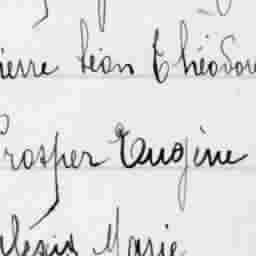 ierre Léon Théodor
Prosper Eugène
Alexis Marie